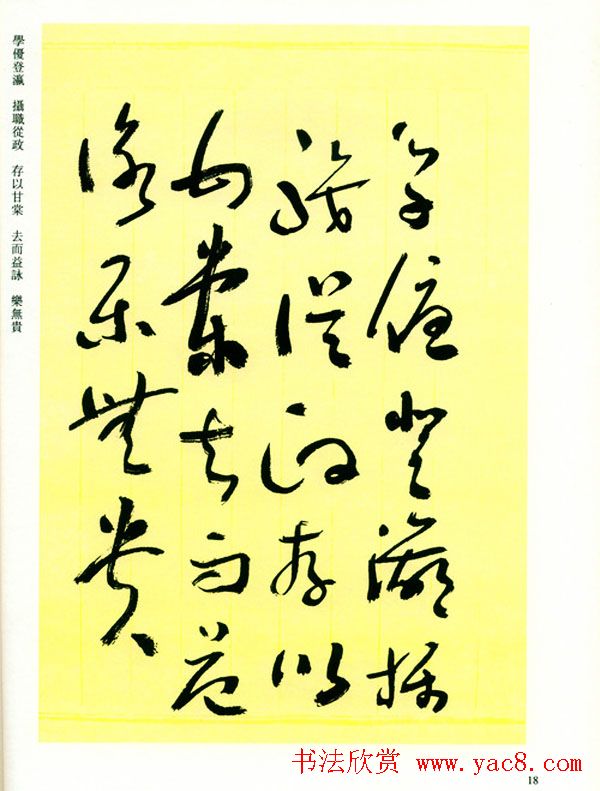 學優登瀛攝
職從政存以
甘棠去而益
詠樂無貴
學優登瀛 攝職從政 存以甘棠 去而益詠 樂無貴
书法欣赏 www.yac8.com
18